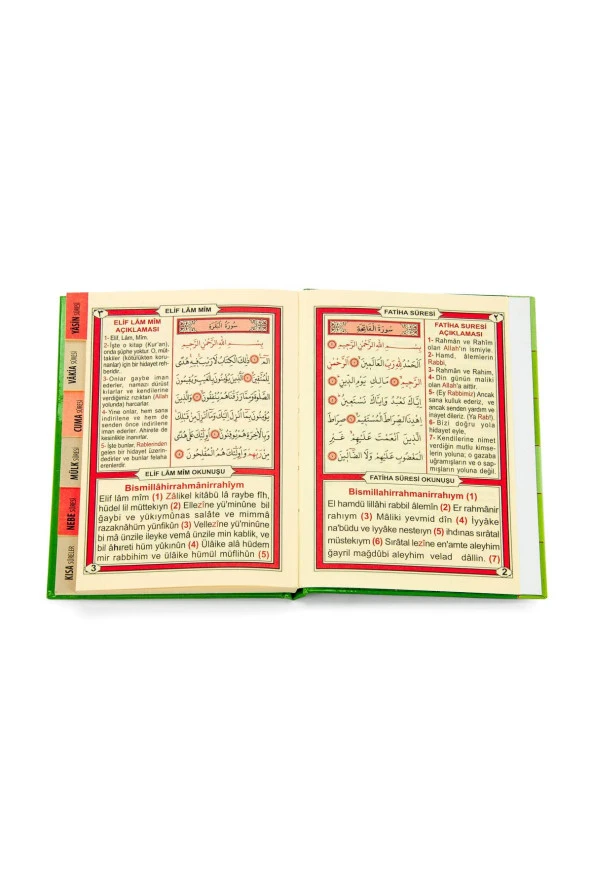 FATİHA SÛRESİ
٢
سُورَةُ الْفَاتِحَةِ
بِسْمِ اللّٰهِ الرَّحْمٰنِ الرَّحِيمِ
اَلْحَمْدُ لِلّٰهِ رَبِّ الْعَالَمِينَ الرَّحْمٰنِ
الرَّحِيمِ مَالِكِ يَوْمِ الدِّينِ
اِيَّاكَ نَعْبُدُ وَاِيَّاكَ نَسْتَعِينُ
اِهْدِنَا الصِّرَاطَ الْمُسْتَقِيمَ صِرَاطَ
الَّذِينَ اَنْعَمْتَ عَلَيْهِمْ غَيْرِ
الْمَغْضُوبِ عَلَيْهِمْ وَلَا الضَّالِّينَ
FATİHA SURESİ
AÇIKLAMASI
1- Rahmân ve Rahîm
olan Allah'ın ismiyle.
2- Hamd, âlemlerin
Rabbi,
3- Rahmân ve Rahim,
4- Din günün maliki
olan Allah'a aittir.
5- (Ey Rabbimiz) Ancak
sana kulluk ederiz, ve
ancak senden yardım ve
inayet dileriz. (Ya Rab!).
6- Bizi doğru yola
hidayet eyle.
7- Kendilerine nimet
verdiğin mutlu kimse-
lerin yoluna; o gazaba
uğramışların ve o sap-
mışların yoluna değil.
FATİHA SÛRESİ OKUNUŞU
Bismillahirrahmanirrahıym (1)
El hamdü lillâhi rabbil âlemîn (2) Er rahmânir
rahıym (3) Mâliki yevmid dîn (4) İyyâke
na'büdü ve iyyâke nesteıyn (5) ihdınas sırâtal
müstekıym (6) Sırâtal lezîne en'amte aleyhim
ğayril mağdûbi aleyhim velad dâllîn. (7)
2
ELİF LÂM MÎM
٣
ELİF LÂM MÎM
AÇIKLAMASI
1- Elif, Lâm, Mîm.
2-İşte o kitap (Kur'an),
onda şüphe yoktur. O, müt-
takiler (kötülükten koru-
nanlar) için bir hidayet reh-
beridir.
3-Onlar gaybe iman
ederler, namazı dürüst
kılarlar ve kendilerine
verdiğimiz rızıktan (Allah
yolunda) harcarlar.
4-Yine onlar, hem sana
indirilene ve hem de
senden önce indirilene
iman ederler. Ahirete de
kesinlikle inanırlar.
5- İşte bunlar, Rablerinden
gelen bir hidayet üzerin-
dedirler ve bunlar felaha
erenlerdir.
سُورَةُ الْبَقَرَةِ
بِسْمِ اللّٰهِ الرَّحْمٰنِ الرَّحِيمِ
الٓمٓ ذٰلِكَ الْكِتَابُ لَا رَيْبَ فِيهِ هُدًى
لِلْمُتَّقِينَ اَلَّذِينَ يُؤْمِنُونَ بِالْغَيْبِ وَيُقِيمُونَ
الصَّلٰوةَ وَمِمَّا رَزَقْنَاهُمْ يُنْفِقُونَ وَالَّذِينَ
يُؤْمِنُونَ بِمَا اُنْزِلَ اِلَيْكَ وَمَا اُنْزِلَ مِنْ قَبْلِكَ
وَبِالْاٰخِرَةِ هُمْ يُوقِنُونَ اُولٰئِكَ عَلٰى هُدًى
مِنْ رَبِّهِمْ وَاُولٰئِكَ هُمُ الْمُفْلِحُونَ
ELİF LÂM MÎM OKUNUŞU
Bismillâhirrahmânirrahîym
Elif lâm mîm (1) Zâlikel kitâbü lâ raybe fîh,
hüdel lil müttekıyn (2) Ellezîne yü'minûne bil
ğaybi ve yükıymûnas salâte ve mimmâ
razaknâhüm yünfikûn (3) Vellezîne yü'minûne
bi mâ ünzile ileyke vemâ ünzile min kablik, ve
bil âhıreti hüm yûkınûn (4) Ülâike alâ hüdem
mir rabbihim ve ülâike hümül müflihûn (5)
3
YÂSİN SÛRESİ
VÂKIA SÛRESİ
CUMA SÛRESİ
MÜLK SÛRESİ
NEBE SÛRESİ
KISA SÛRELER